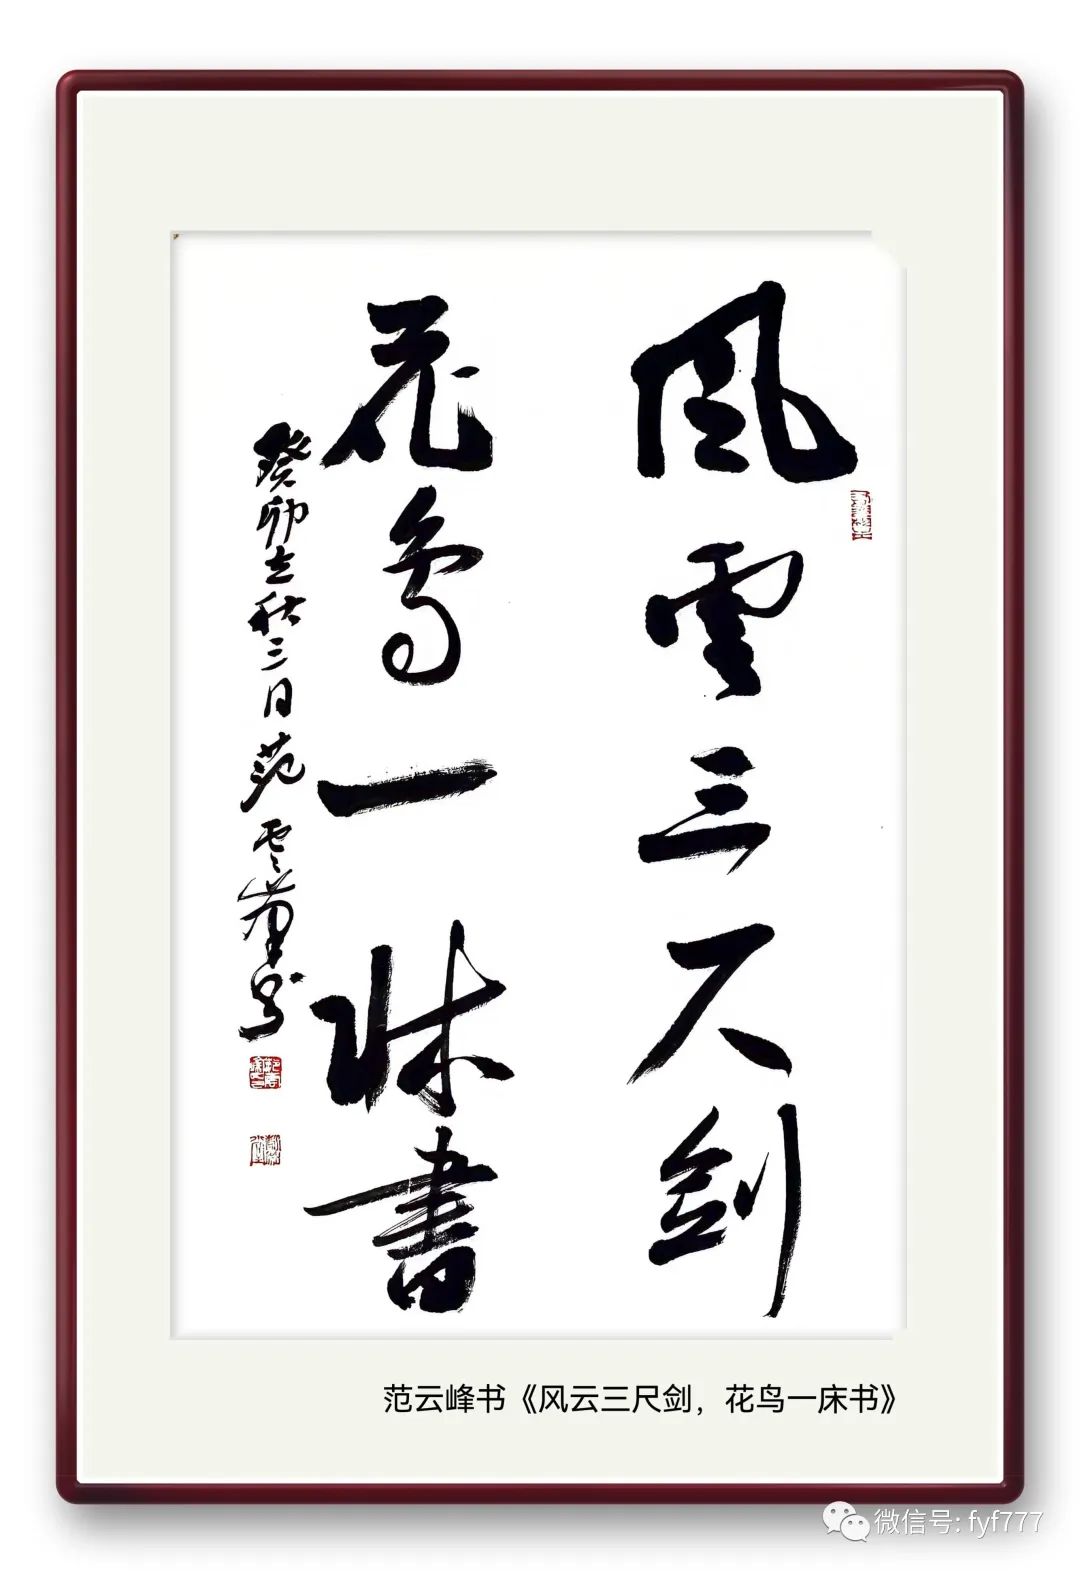 風雲三尺劍
花鳥一牀書
癸卯立秋三日范雲峰書
范云峰书《风云三尺剑，花鸟一床书》
微信号: fyf777